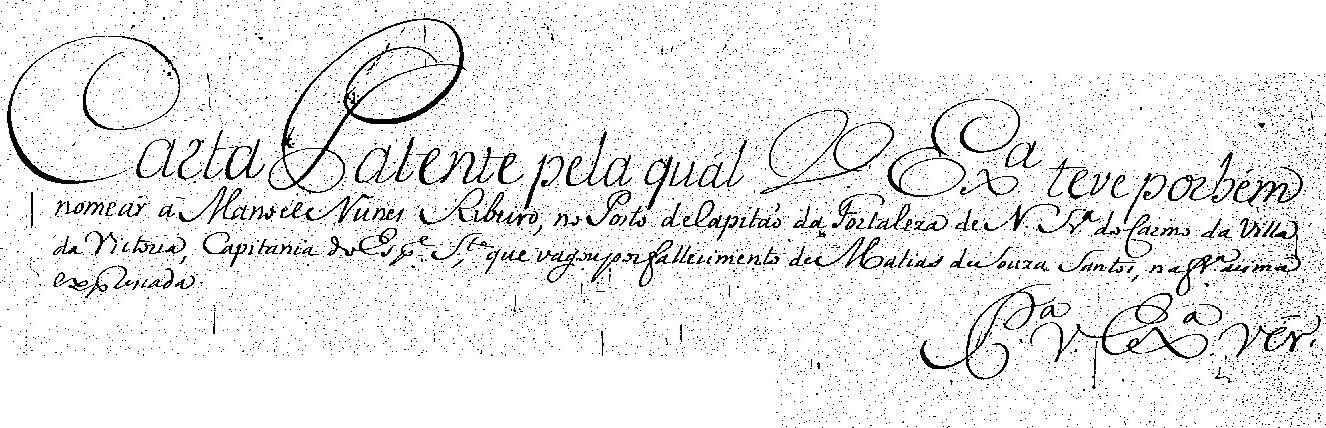 Carta Patente pela qual V Ex.ª teve por bém
nomear a Manoel Nunes Ribeiro, no Posto de Capitaõ da Fortaleza de N. Sr.ª do Carmo da Villa
da Victoria, Capitania do Esp.º S.to que vagou por fallecimento de Matias de Souza Santos, na fr.ª asima
expliicada.
P.ª V. Ex.ª vér.